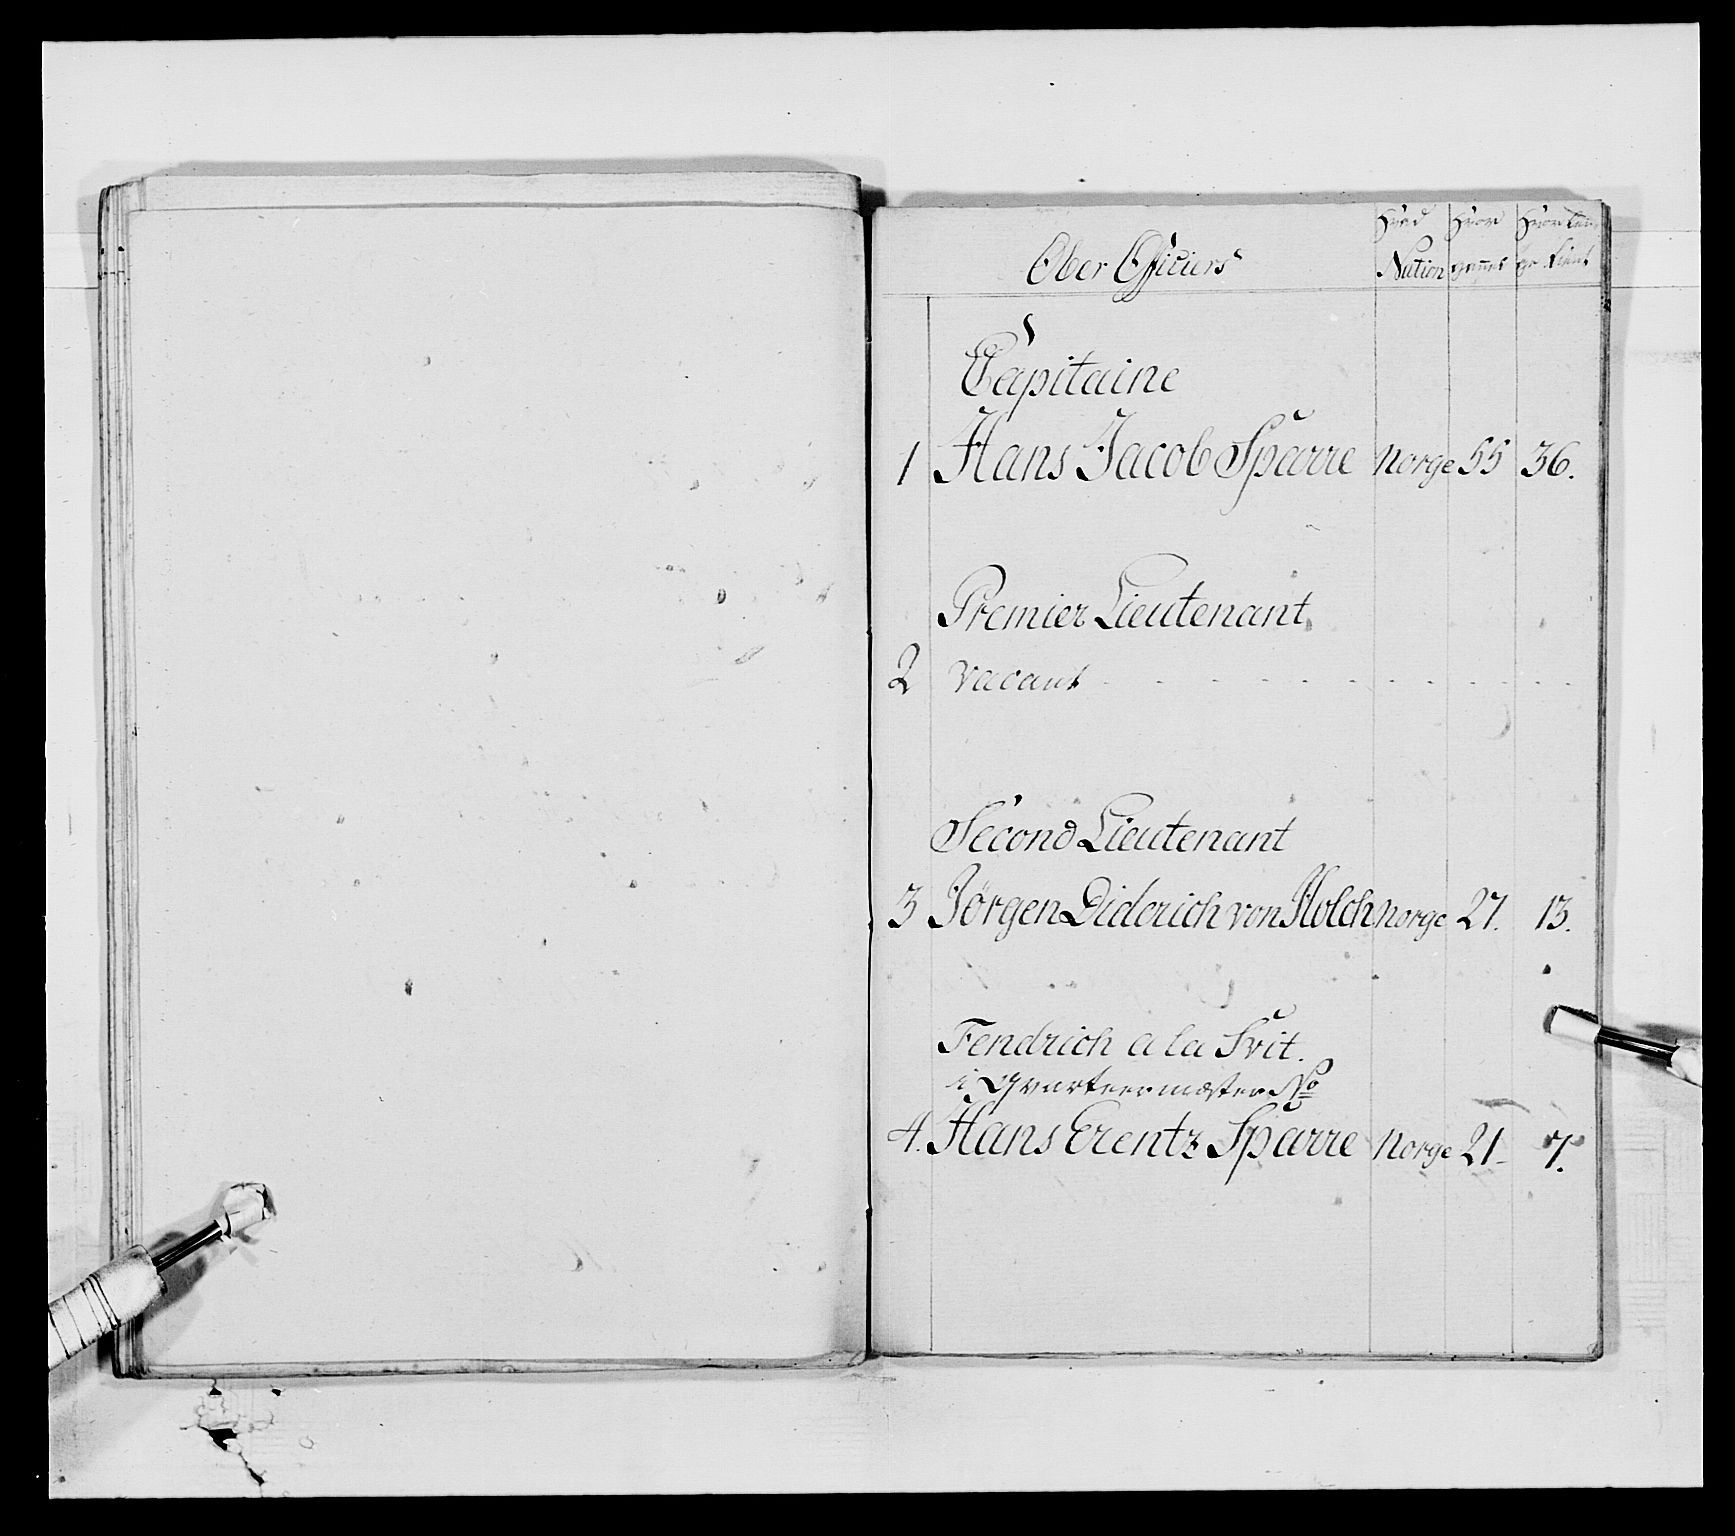 Ober Officiers
Hvad Nation
Hvor gammel
Hvor længe tient
Capitaine
1 Hans Jacob Sparre Norge 55 36.
Premier Lieutenant
2 vacant
Second Lieutenant
3 Jörgen Diderich von Holch Norge 27. 13.
Fendrich a la Svit.
i Qvarteermæster No
4. Hans Erentz Sparre Norge 21 7.